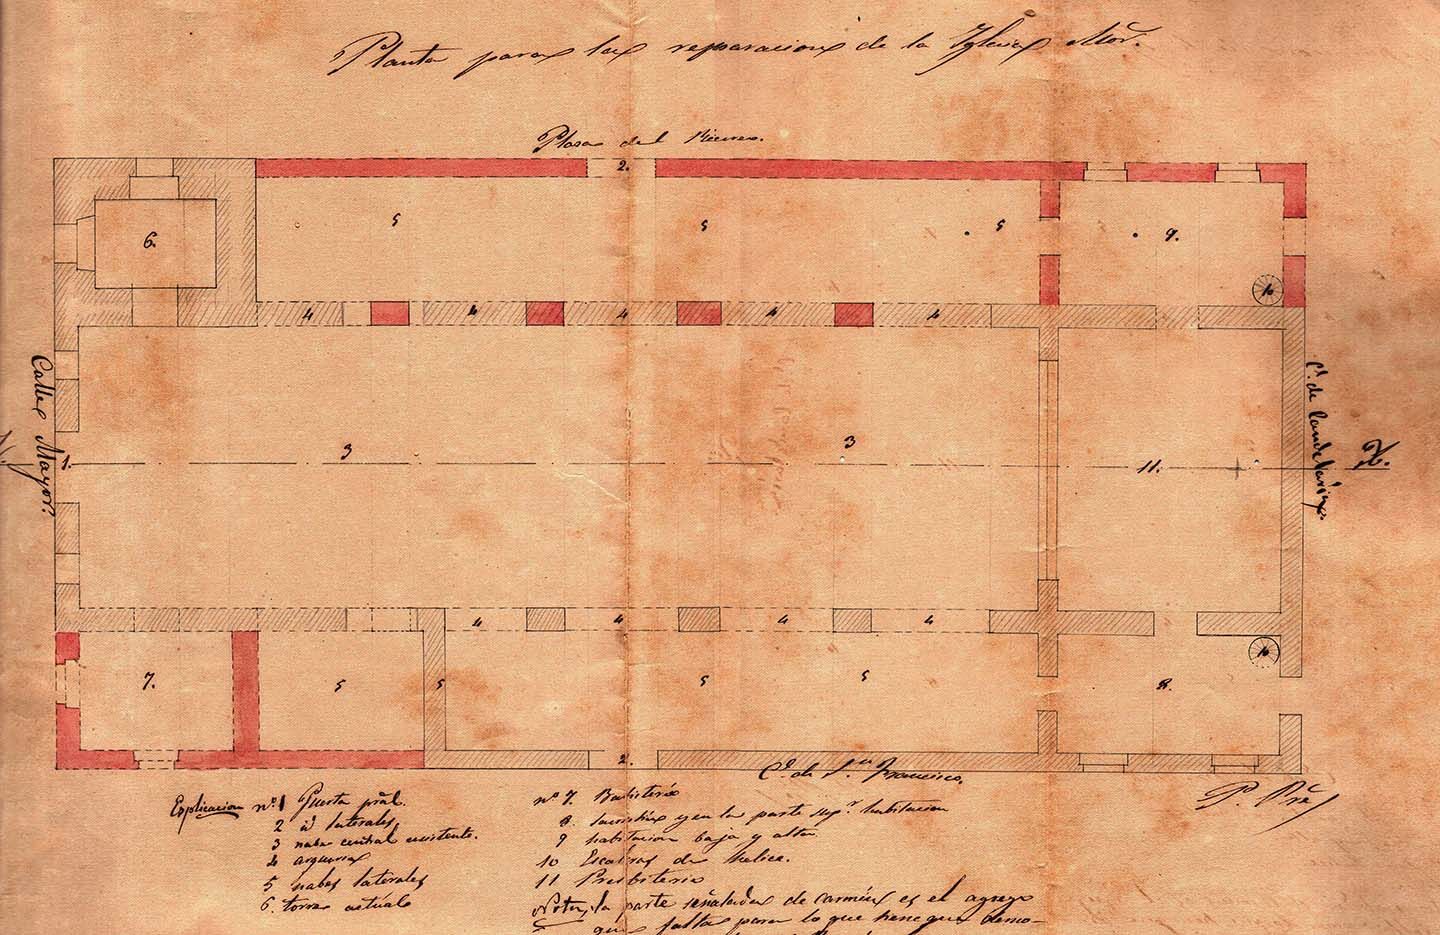 Planta para las reparacions de la Iglesia Mor.
Plasa del Recreo.
2.
6.
5
5
5
9.
10
4
4
4
4
4
Calle Mayor.
1.
3
3
11.
Ce. de
N.
4
4
4
4
10
7.
5
5
5
5
8.
2.
Ce. de Sn. Francisco.
P. Pre
Esplicacion no. 1 Puerta pral.
2 id laterales
3 nabe central ecsistente.
4 arquerias
5 nabes laterales
6. torre actual
no. 7. Batisterio
8. sacristia y en la parte supr. habitacion
9 habitacion baja y alta
10 Escaleras de
11 Presbiterio
Nota, la parte señalada de carmin es el agrego
que falta para lo que tiene que demo-